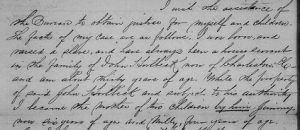 I wish the assistance of
the Bureau to obtain justice for myself and children.
The facts of my case are as follows. I was born and
raised a slave, and have always been a house servant
in the family of John now of Charleston S.C.
and am about thirty years of age. While the property
of said John and subject to his authority
I became the mother of two children by him, Jimmy
now six years of age and Milly, four years of age.